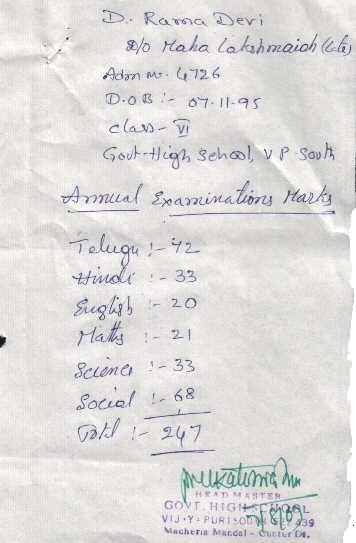 D. Rama Devi
D/o Maha Lakshmaiah (late)
Adm No. 4726
D.O.B :- 07-11-95
class - VI
Govt. High School, V.P. South
Annual Examinations Marks
Telugu :- 72
Hindi :- 33
English :- 20
Maths :- 21
Science :- 33
Social :- 68
Total :- 247
HEAD MASTER
GOVT. HIGH SCHOOL
VIJAY PURI SOUTH
Macherla Mandal - Guntur Dt.